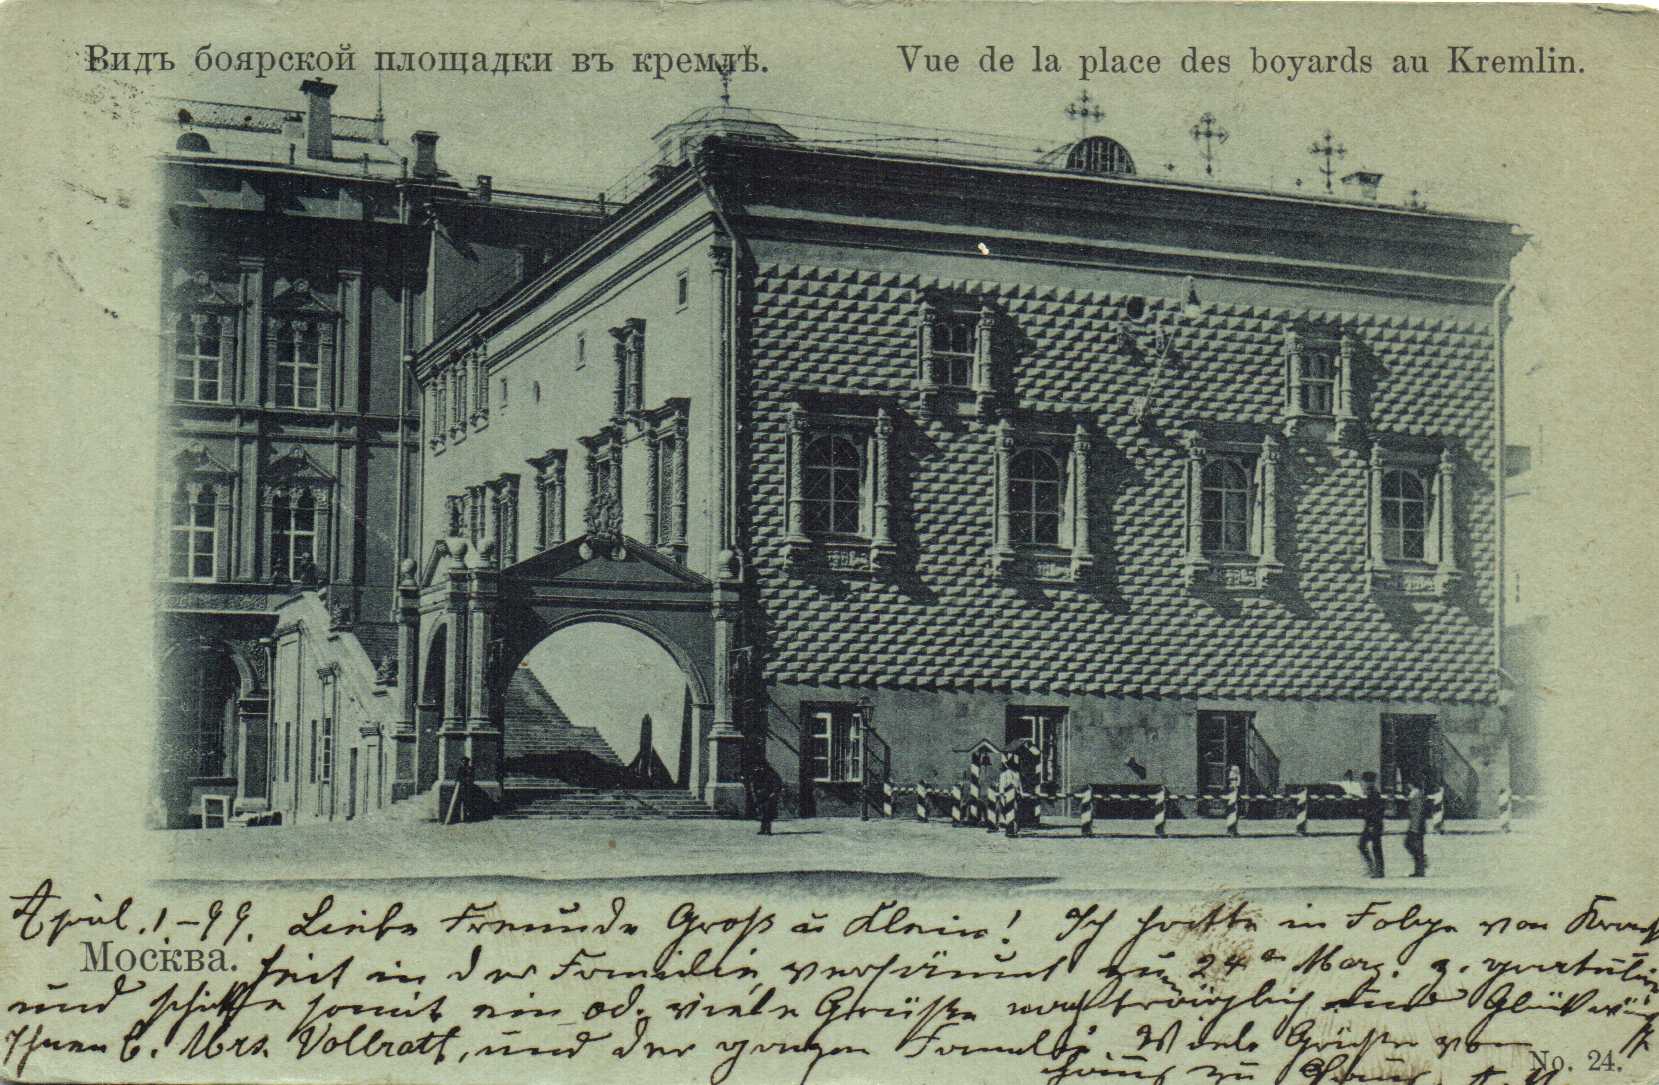 Видъ боярской площадки въ кремлѣ.
Vue de la place des boyards au Kremlin.
April. 1 - 99. Liebe Freunde Groß u Klein! Ich hatte in Folge von Krank
Москва.
heit in der Familie, versäumt zum 24 März. z. gratulie
und schicke somit ein od. viele Grüße nachträglich und Glückwün
Ihnen l. Mrs. Vollrath, und der ganzen Familie. Viele Grüße von
Haus zu Haus
No. 24.